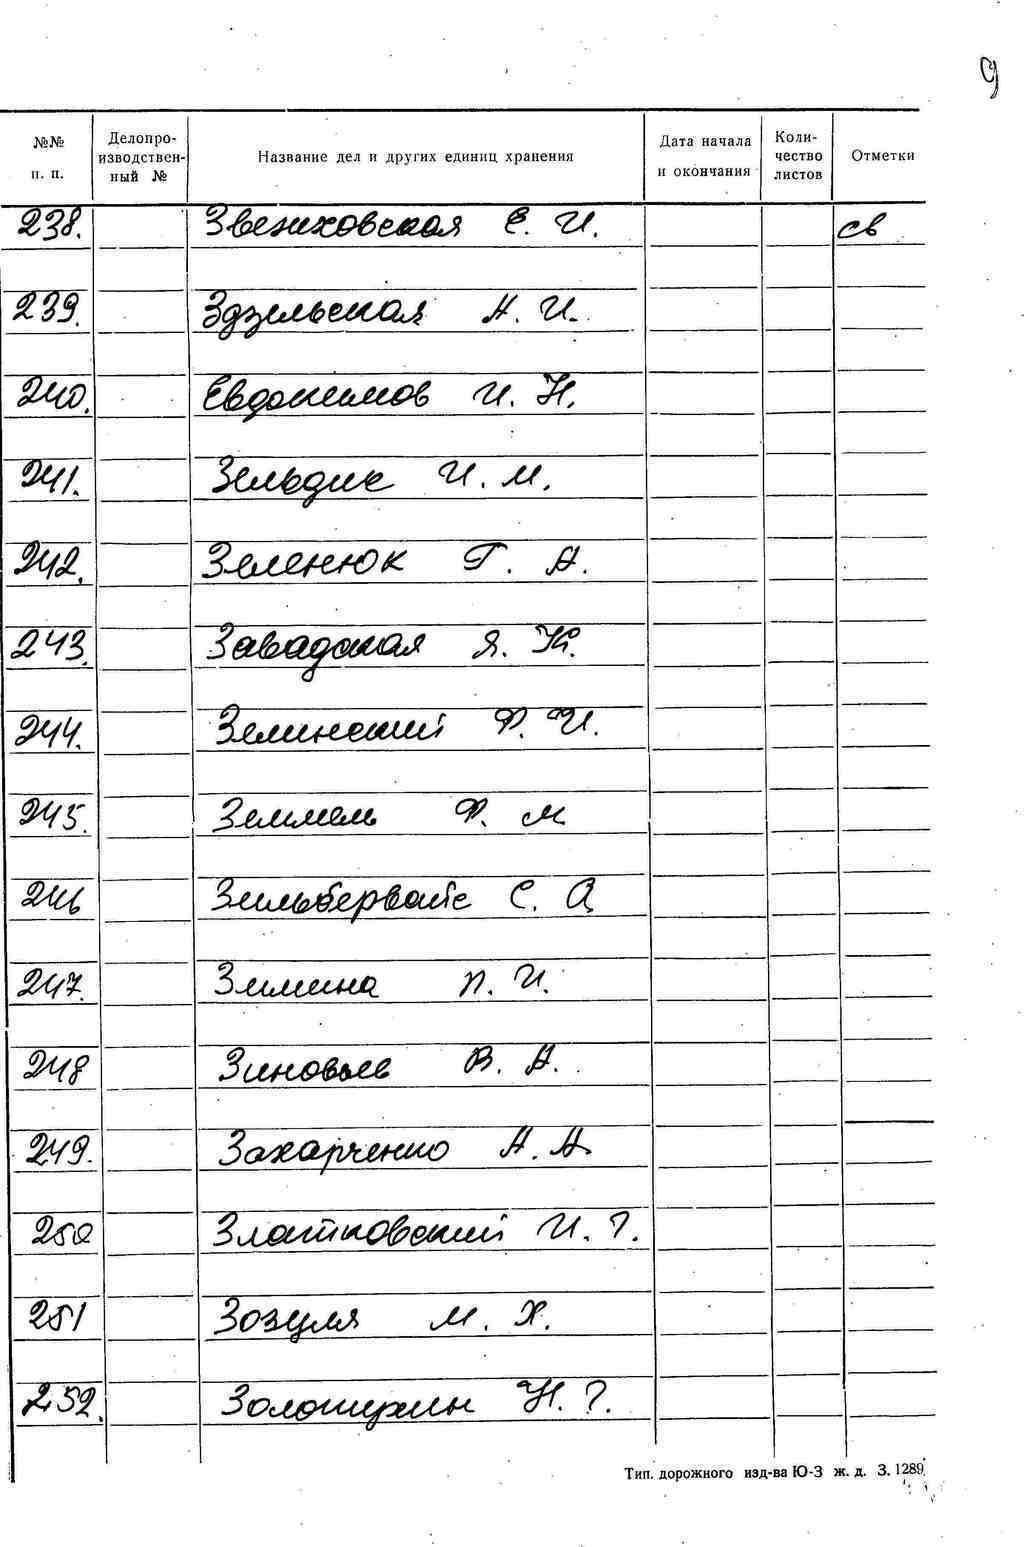 9
№№ п. п. Делопроизводственный № Название дел и других единиц хранения Дата начала и окончания Количество листов Отметки
238. Звенховская Е. И. св
239. Здзельская А. И.
240. Евдокимов И. Н.
241. Зельдис И. М.
242. Зеленюк Г. А.
243. Завадская Я. К.
244. Зелинский Ф. И.
245. Земмель Ф. М
246 Зильбервайс С. А
247. Зимина П. И.
248 Зиновьев В. А.
249. Захарченко А. А.
250 Златковский И. Г.
251 Зозуля М. Х.
252. Золотухин Н. Г.
Тип. дорожного изд-ва Ю-З ж. д. З. 1289.